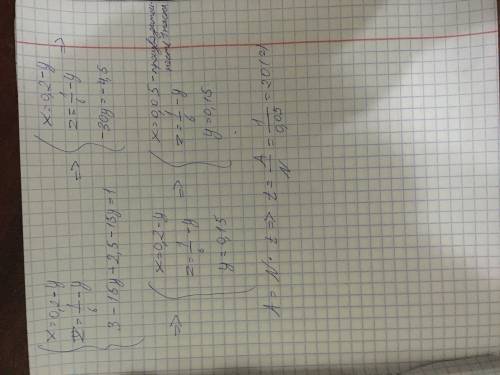 x=0,2-y
z=1/6-y
3-15y+2,5-15y=1
=>
x=0,2-y
z=1/6-y
-30y=-4,5
=>
=>
x=0,2-y
z=1/6-y
y=0,15
=>
x=0,05-
z=1/6-y
y=0,15
A=N·t=>t=A/N=1/0,05=20(